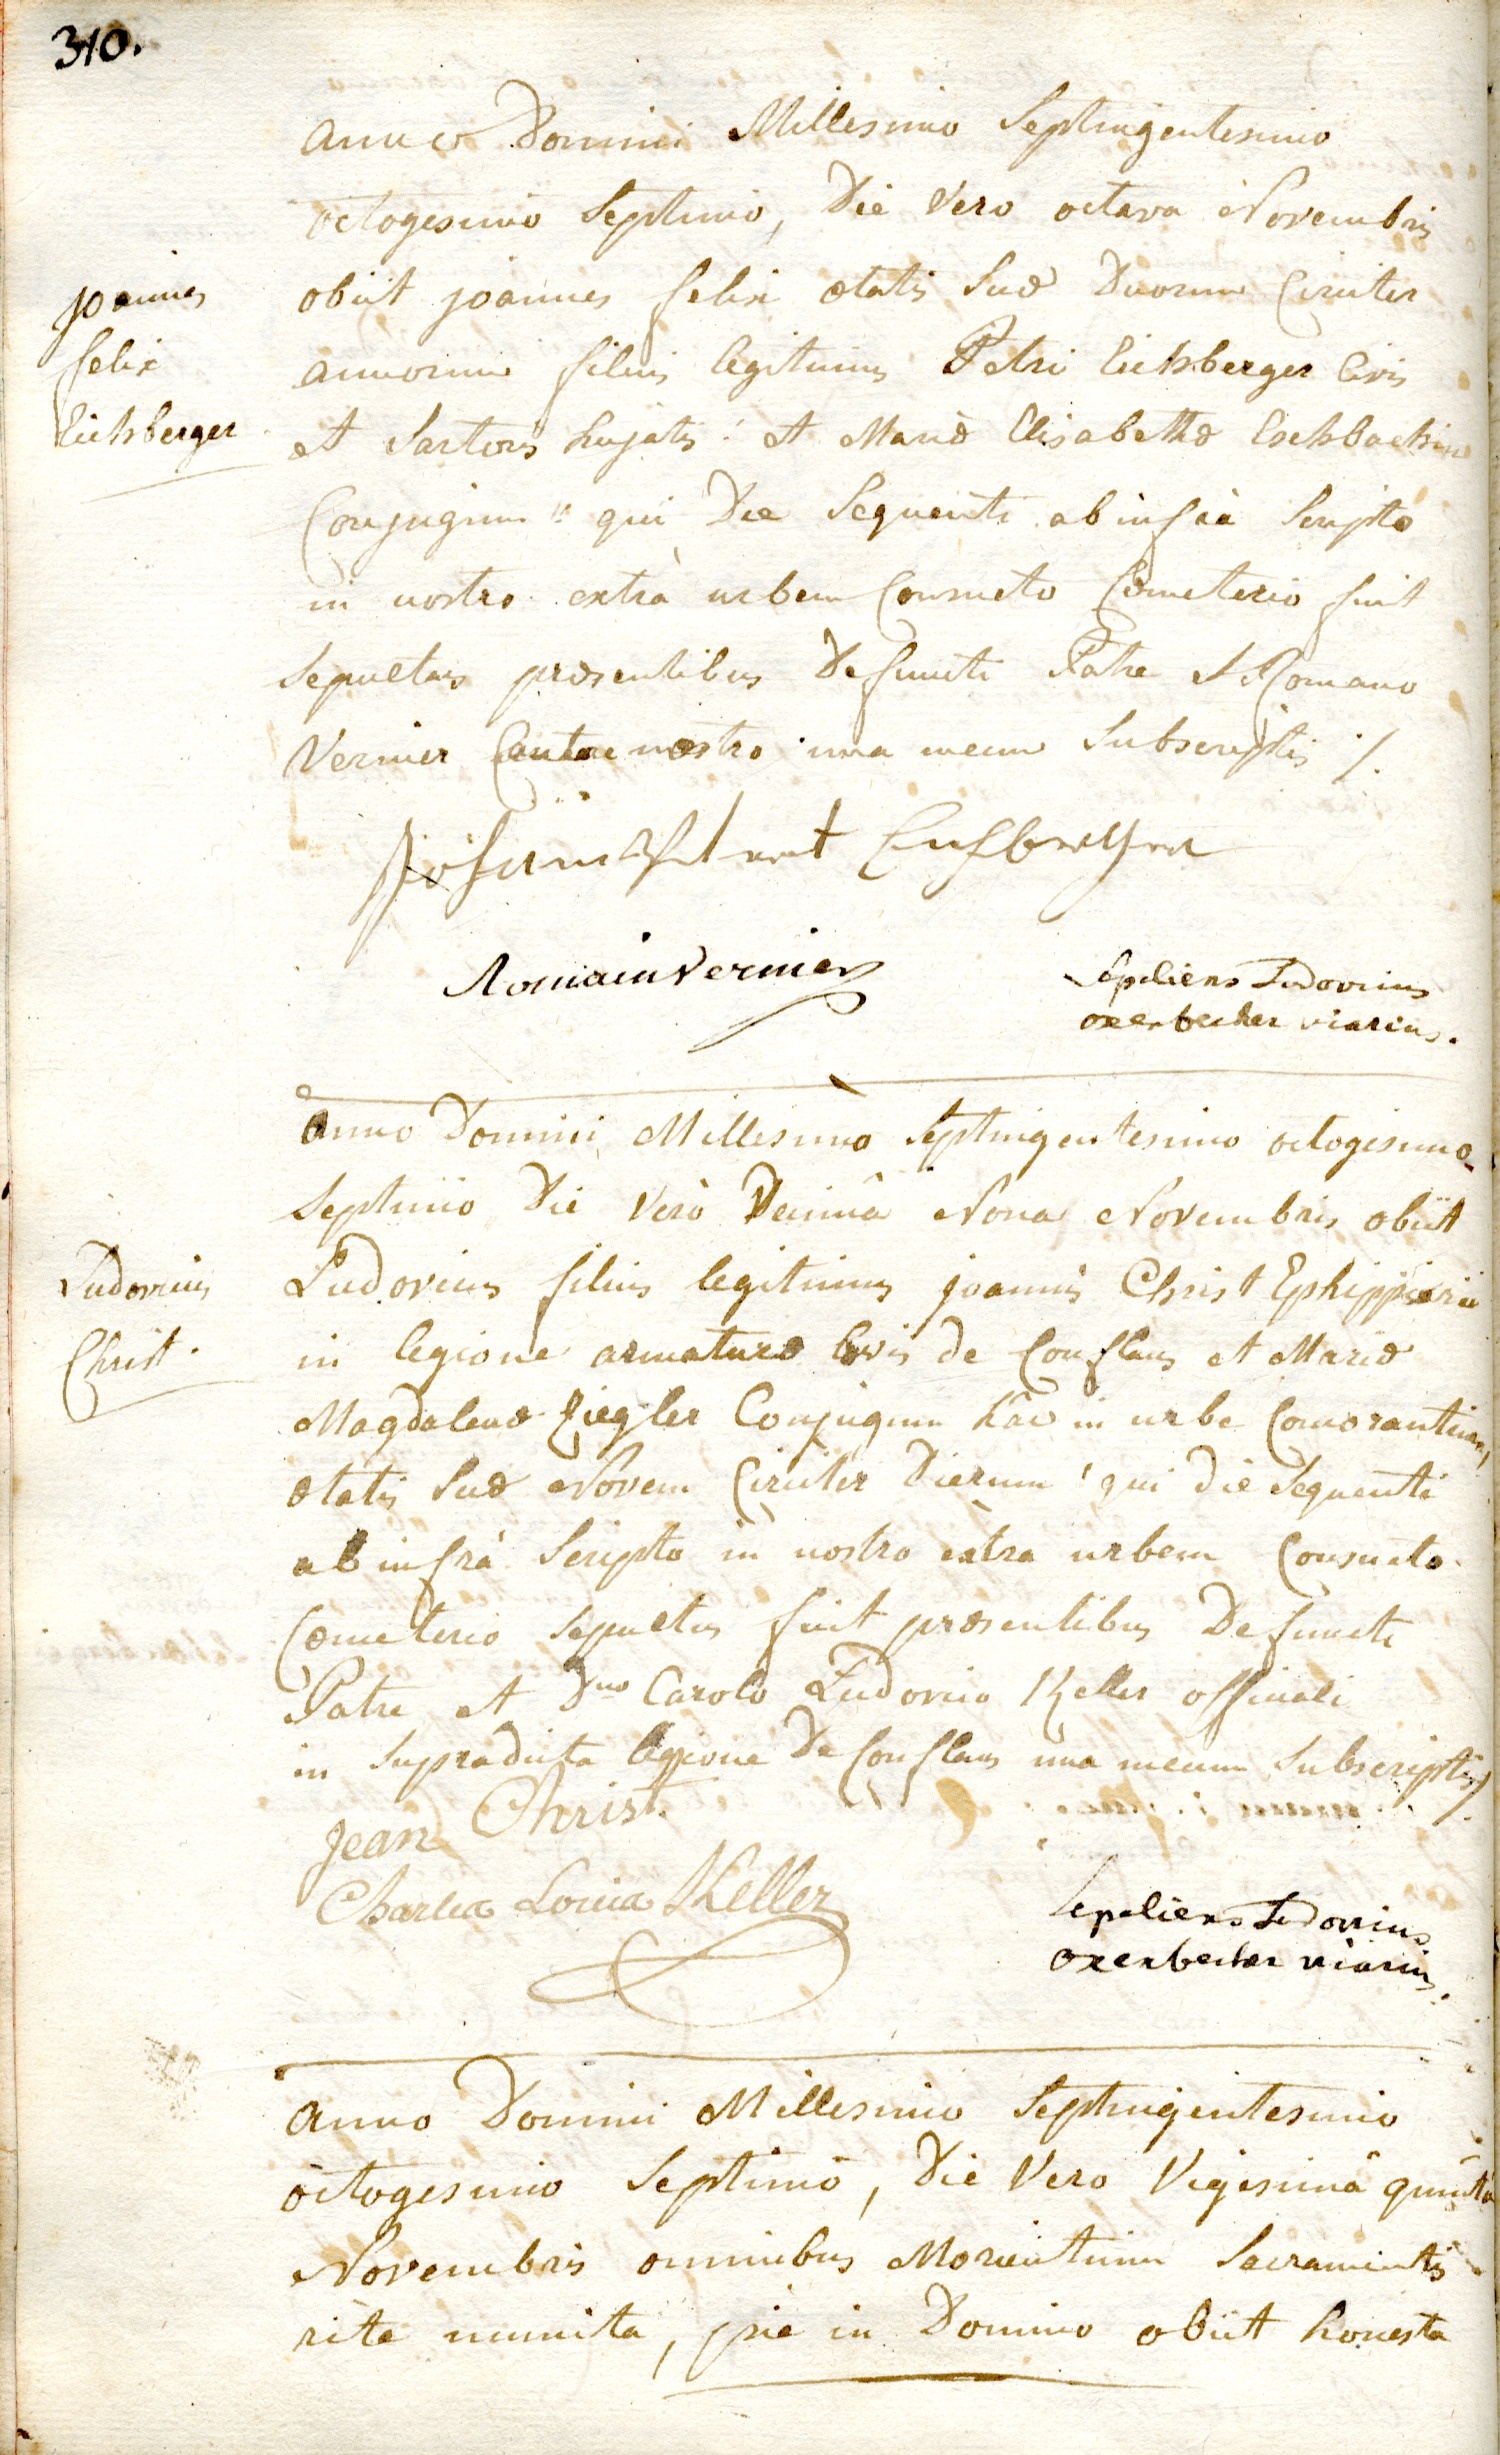 310.
Anno Domini Millesimo Septingentesimo
octogesimo Septimo, Die Vero octava Novembris
Joannes
felix
Eichberger
obiit joannes felix ætatis Suæ Duorum Circiter
annorum filius legitimus Petri Eichberger Civis
et Sartoris hujatis: et Mariæ Elisabethæ Eschbachin
Conjugum: qui Die Sequenti ab infrà Scripto
in nostro extrà urbem Consueto Cœmeterio fuit
Sepultus præsentibus Defuncti Patre et Romano
Vernier Cantore nostro una mecum Subscriptis ./.
Romain Vernier
Sepeliens Ludovicus
oxenbecher vicarius.
Anno Domini Millesimo Septingentesimo octogesimo
Septimo Die Verò Decimâ Nona Novembris obiit
Ludovicus
Christ.
Ludovicus filius legitimus joannis Christ Ephippiarii
in legione armaturæ levis de Conflans et Mariæ
Magdalenæ Ziegler Conjugum hâc in urbe Comorantium,
ætatis Suæ Novem Circiter Dierum: qui die Sequenti
ab infrà Scripto in nostro extra urbem Consueto
Cœmeterio Sepultus fuit præsentibus Defuncti
Patre et Dno Carolo Ludovico Keller officiali
in Supradicta legione De Conflans una mecum Subscriptis ./.
Jean Christ.
Charles Louis Keller
Sepeliens Ludovicus
oxenbecher vicarius.
Anno Domini Millesimo Septingentesimo
octogesimo Septimo, Die Vero Vigesimâ quintâ
Novembris omnibus Morientium Sacramentis
rite munita, pie in Domino obiit honesta